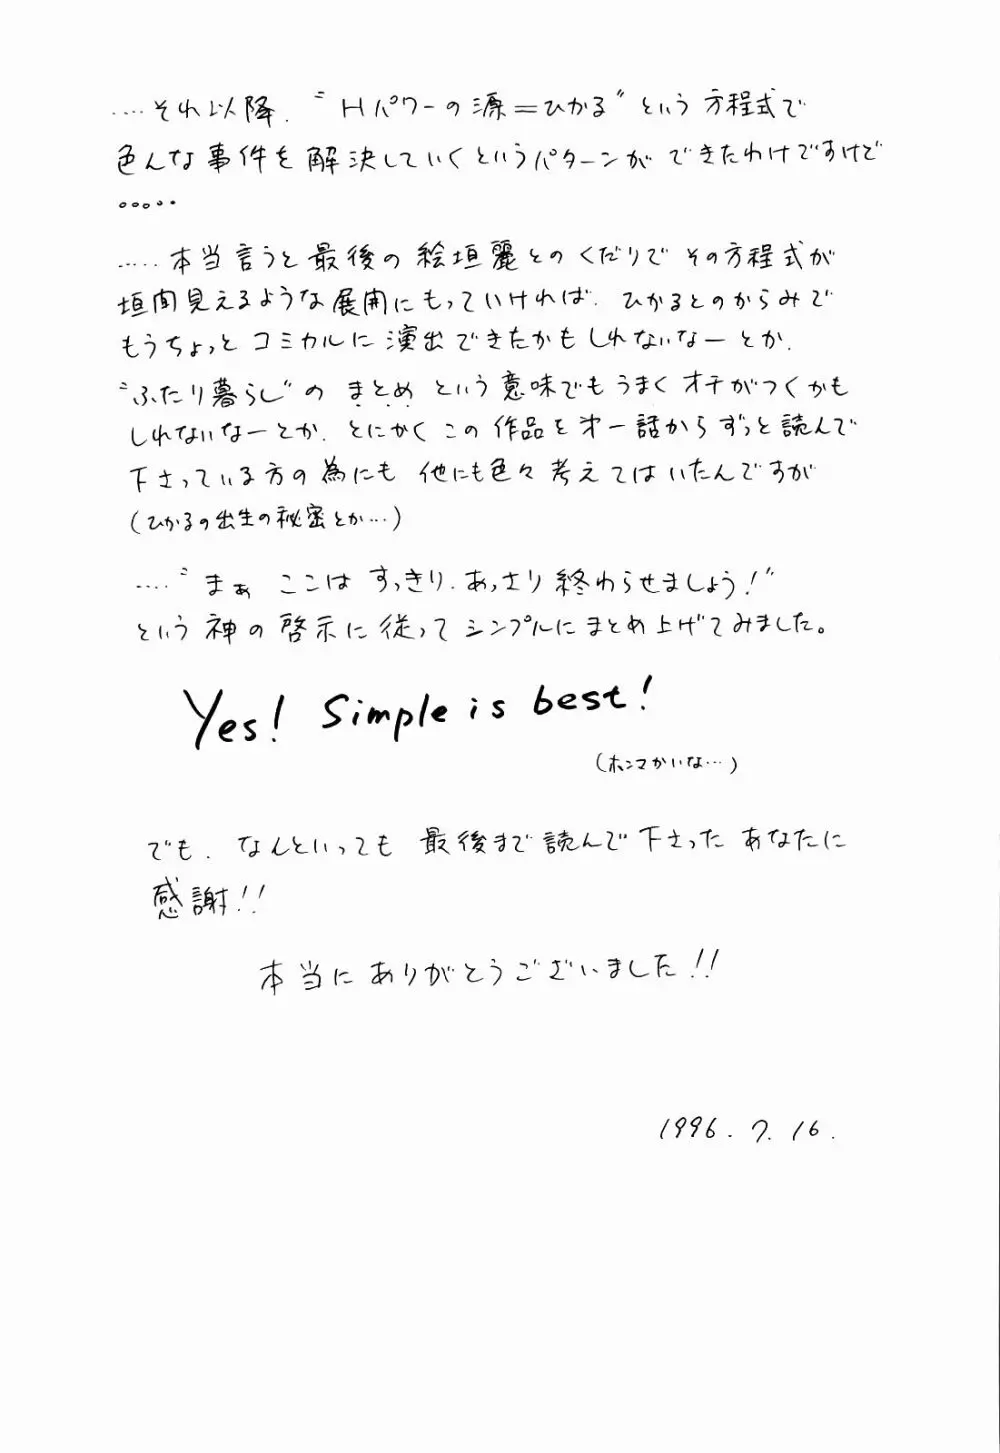 ....それ以降、〝Hパワーの源=ひかる〟という方程式で
色んな事件を解決していくというパターンができたわけですけど
.....
.....本当言うと最後の絵垣麗とのくだりでその方程式が
垣間見えるような展開にもっていければ、ひかるとのからみで
もうちょっとコミカルに演出できたかもしれないなーとか、
〝ふたり暮らし〟のまとめという意味でもうまくオチがつくかも
しれないなーとか、とにかくこの作品を第一話からずっと読んで
下さっている方の為にも他にも色々考えてはいたんですが
(ひかるの出生の秘密とか…)
....〝まぁここはすっきり、あっさり終わらせましょう!〟
という神の啓示に従ってシンプルにまとめ上げてみました。
Yes! Simple is best!
(ホンマかいな…)
でも、なんといっても最後まで読んで下さったあなたに
感謝!!
本当にありがとうございました!!
1996.7.16.